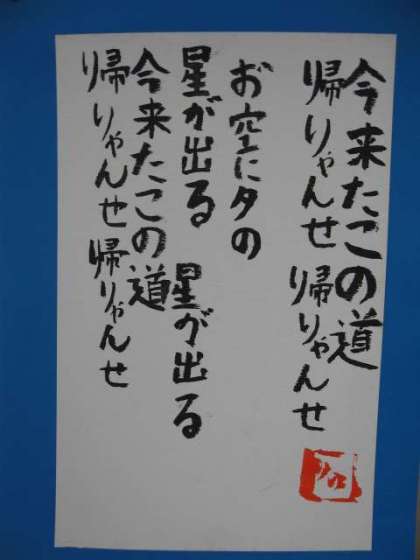 今来たこの道
帰りゃんせ 帰りゃんせ
お空に夕の
星が出る 星が出る
今来たこの道
帰りゃんせ 帰りゃんせ